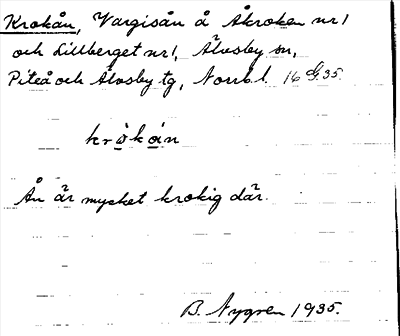 Krokån, Vargisån å Åkroken nr 1
och Lillberget nr 1, Älvsby sn,
Piteå och Älvsby tg, Norrb. l. 16 G 35.
krokån
Ån är mycket krokig där.
B. Nygren 1935.